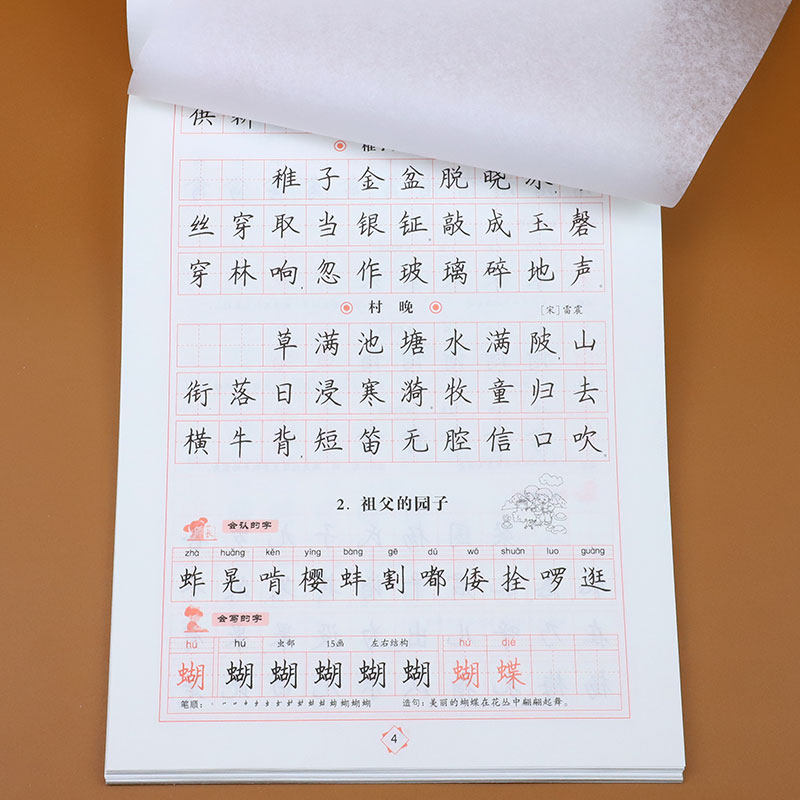 供 新
稚子
稚子金盆脱晓冰，
丝穿取当银钲。敲成玉磬
穿林响，忽作玻璃碎地声
村晚
[宋]雷震
草满池塘水满陂，山
衔落日浸寒漪。牧童归去
横牛背，短笛无腔信口吹。
2. 祖父的园子
会认的字
zhà huǎng kěn yīng bàng gē dū wō shuān luo guàng
蚱 晃 啃 樱 蚌 割 嘟 倭 拴 啰 逛
会写的字
hú hú 虫部 15画 左右结构 hú dié
蝴 蝴 蝴 蝴 蝴 蝴 蝴 蝶
造句：美丽的蝴蝶在花丛中翩翩起舞。
笔顺：
4